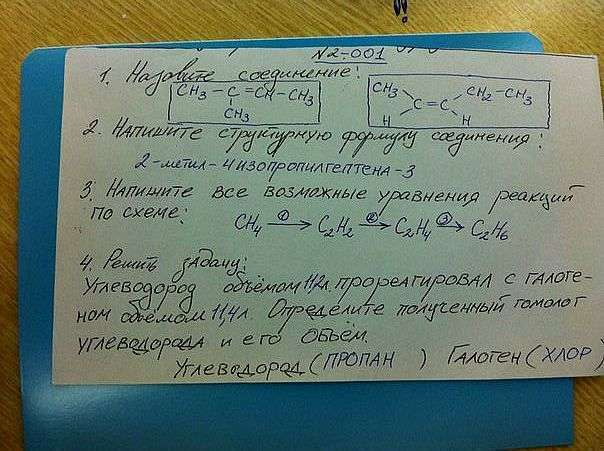 N2-001
1. Назовите соединение:
CH3 – C = CH – CH3
CH3
CH3 CH2 – CH3
C = C
H H
2. Напишите структурную формулу соединения:
2-метил-4изопропилгептена-3
3. Напишите все возможные уравнения реакций
по схеме: CH4 ①→ C2H2 ②→ C2H4 ③→ C2H6
4. Решить задачу:
Углеводород объёмом 11,2л. прореагировал с галоге-
ном объёмом 11,4л. Определите полученный гомолог
углеводорода и его объём.
Углеводород (ПРОПАН ) Галоген (ХЛОР)